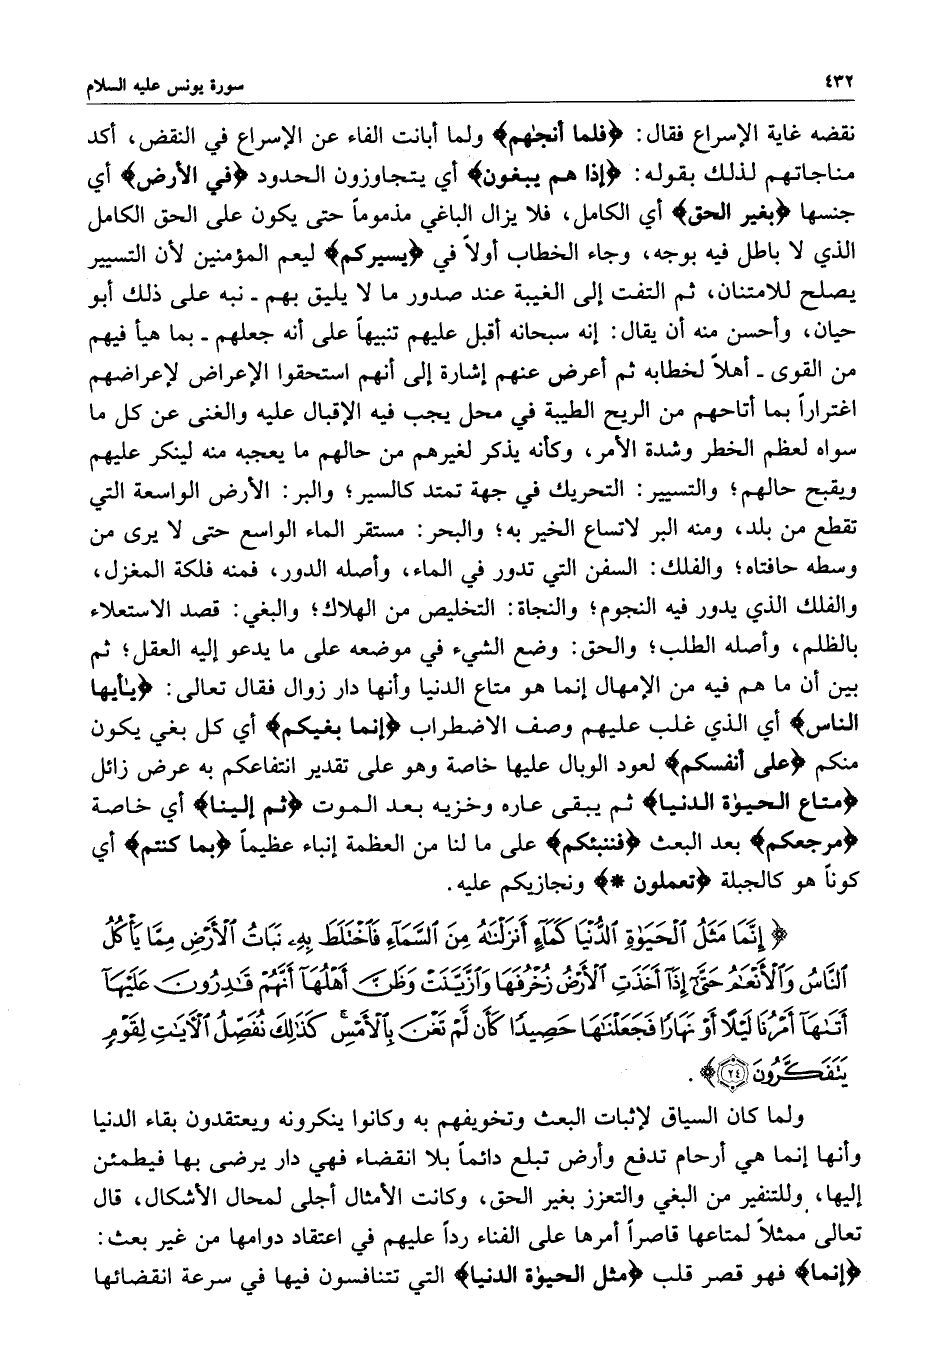 ٤٣٢ سورة يونس عليه السلام
نقضه غاية الإسراع فقال: ﴿فلما أنجٰهم﴾ ولما أبانت الفاء عن الإسراع في النقض، أكد
مناجاتهم لذلك بقوله: ﴿إذا هم يبغون﴾ أي يتجاوزون الحدود ﴿في الأرض﴾ أي
جنسها ﴿بغير الحق﴾ أي الكامل، فلا يزال الباغي مذموماً حتى يكون على الحق الكامل
الذي لا باطل فيه بوجه، وجاء الخطاب أولاً في ﴿يسيركم﴾ ليعم المؤمنين لأن التسيير
يصلح للامتنان، ثم التفت إلى الغيبة عند صدور ما لا يليق بهم ـ نبه على ذلك أبو
حيان، وأحسن منه أن يقال: إنه سبحانه أقبل عليهم تنبيهاً على أنه جعلهم ـ بما هيأ فيهم
من القوى ـ أهلاً لخطابه ثم أعرض عنهم إشارة إلى أنهم استحقوا الإعراض لإعراضهم
اغتراراً بما أتاحهم من الريح الطيبة في محل يجب فيه الإقبال عليه والغنى عن كل ما
سواه لعظم الخطر وشدة الأمر، وكأنه يذكر لغيرهم من حالهم ما يعجبه منه لينكر عليهم
ويقبح حالهم؛ والتسيير: التحريك في جهة تمتد كالسير؛ والبر: الأرض الواسعة التي
تقطع من بلد، ومنه البر لاتساع الخير به؛ والبحر: مستقر الماء الواسع حتى لا يرى من
وسطه حافتاه؛ والفلك: السفن التي تدور في الماء، وأصله الدور، فمنه فلكة المغزل،
والفلك الذي يدور فيه النجوم؛ والنجاة: التخليص من الهلاك؛ والبغي: قصد الاستعلاء
بالظلم، وأصله الطلب؛ والحق: وضع الشيء في موضعه على ما يدعو إليه العقل؛ ثم
بين أن ما هم فيه من الإمهال إنما هو متاع الدنيا وأنها دار زوال فقال تعالى: ﴿يٰأيها
الناس﴾ أي الذي غلب عليهم وصف الاضطراب ﴿إنما بغيكم﴾ أي كل بغي يكون
منكم ﴿على أنفسكم﴾ لعود الوبال عليها خاصة وهو على تقدير انتفاعكم به عرض زائل
﴿متاع الحيوٰة الدنيا﴾ ثم يبقى عاره وخزيه بعد الموت ﴿ثم إلينا﴾ أي خاصة
﴿مرجعكم﴾ بعد البعث ﴿فننبئكم﴾ على ما لنا من العظمة إنباء عظيماً ﴿بما كنتم﴾ أي
كوناً هو كالجبلة ﴿تعملون *﴾ ونجازيكم عليه.
﴿إِنَّمَا مَثَلُ ٱلْحَيَوٰةِ ٱلدُّنْيَا كَمَآءٍ أَنزَلْنَٰهُ مِنَ ٱلسَّمَآءِ فَٱخْتَلَطَ بِهِۦ نَبَاتُ ٱلْأَرْضِ مِمَّا يَأْكُلُ
ٱلنَّاسُ وَٱلْأَنْعَٰمُ حَتَّىٰٓ إِذَآ أَخَذَتِ ٱلْأَرْضُ زُخْرُفَهَا وَٱزَّيَّنَتْ وَظَنَّ أَهْلُهَآ أَنَّهُمْ قَٰدِرُونَ عَلَيْهَآ
أَتَىٰهَآ أَمْرُنَا لَيْلًا أَوْ نَهَارًا فَجَعَلْنَٰهَا حَصِيدًا كَأَن لَّمْ تَغْنَ بِٱلْأَمْسِ ۚ كَذَٰلِكَ نُفَصِّلُ ٱلْءَايَٰتِ لِقَوْمٍ
يَتَفَكَّرُونَ ٢٤﴾.
ولما كان السياق لإثبات البعث وتخويفهم به وكانوا ينكرونه ويعتقدون بقاء الدنيا
وأنها إنما هي أرحام تدفع وأرض تبلع دائماً بلا انقضاء فهي دار يرضى بها فيطمئن
إليها، وللتنفير من البغي والتعزز بغير الحق، وكانت الأمثال أجلى لمحال الأشكال، قال
تعالى ممثلاً لمتاعها قاصراً أمرها على الفناء رداً عليهم في اعتقاد دوامها من غير بعث:
﴿إنما﴾ فهو قصر قلب ﴿مثل الحيوٰة الدنيا﴾ التي تتنافسون فيها في سرعة انقضائها